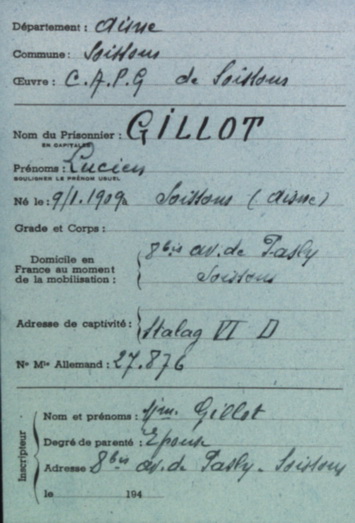 Département : Aisne
Commune : Soissons
Œuvre : C.A.P.G de Soissons
Nom du Prisonnier : GILLOT
EN CAPITALES
Prénoms : Lucien
SOULIGNER LE PRÉNOM USUEL
Né le : 9/1.1909 à Soissons (Aisne)
Grade et Corps :
Domicile en France au moment de la mobilisation : 8bis av. de Pasly
Soissons
Adresse de captivité : Stalag VI D
N° Mle Allemand : 27.876
Inscripteur
Nom et prénoms : Gillot
Degré de parenté : Epouse
Adresse 8bis av. de Pasly - Soissons
le 194